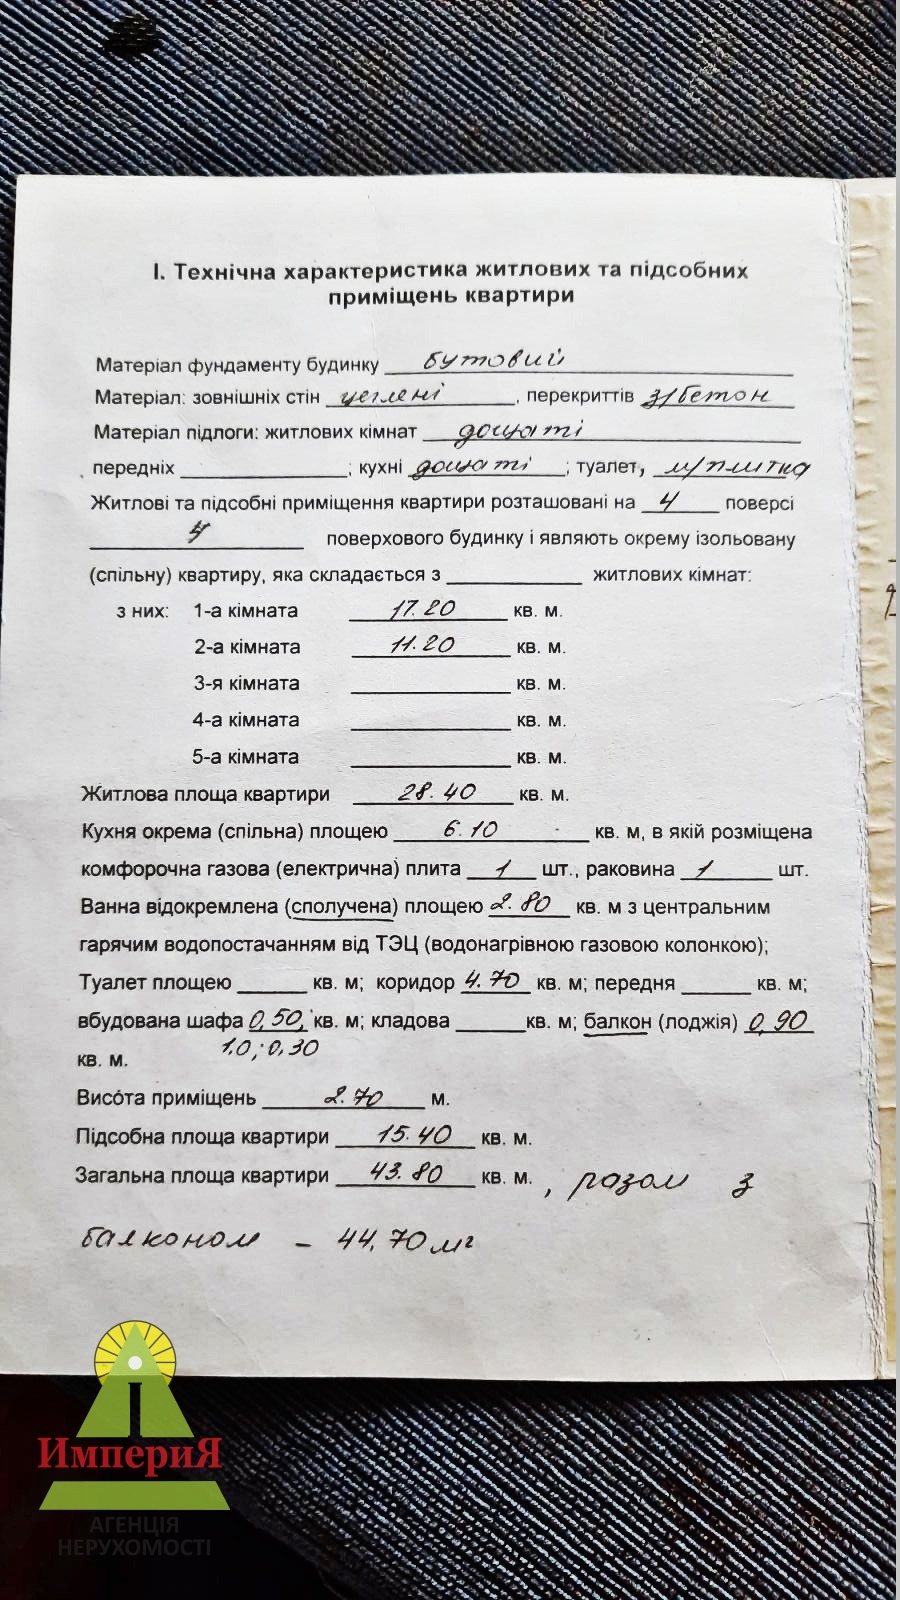 I. Технічна характеристика житлових та підсобних
приміщень квартири
Матеріал фундаменту будинку бутовий
Матеріал: зовнішніх стін цегляні, перекриттів з/бетон
Матеріал підлоги: житлових кімнат дощаті
передніх ; кухні дощаті; туалет, м/плитка
Житлові та підсобні приміщення квартири розташовані на 4 поверсі
поверхового будинку і являють окрему ізольовану
(спільну) квартиру, яка складається з житлових кімнат:
з них: 1-а кімната 17.20 кв. м.
2-а кімната 11.20 кв. м.
3-я кімната кв. м.
4-а кімната кв. м.
5-а кімната кв. м.
Житлова площа квартири 28.40 кв. м.
Кухня окрема (спільна) площею 6.10 кв. м, в якій розміщена
комфорочна газова (електрична) плита 1 шт., раковина 1 шт.
Ванна відокремлена (сполучена) площею 2.80 кв. м з центральним
гарячим водопостачанням від ТЭЦ (водонагрівною газовою колонкою);
Туалет площею кв. м; коридор 4.70 кв. м; передня кв. м;
вбудована шафа 0,50, кв. м; кладова кв. м; балкон (лоджія) 0,90
1.0; 0,30
кв. м.
Висота приміщень 2.70 м.
Підсобна площа квартири 15.40 кв. м.
Загальна площа квартири 43.80 кв. м., разом з
балконом – 44,70 м2
ИмпериЯ
АГЕНЦІЯ
НЕРУХОМОСТІ